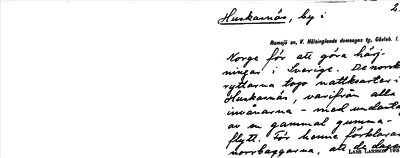 Huskarnäs, by i 2.
Ramsjö sn, V. Hälsinglands domsagas tg, Gävleb. l.
Norge för att göra härj-
ningar i Sverige. De norska
ryttarna togo nattkvarter i
Huskarnäs, varifrån alla
invånarna - med undantag
av en gammal gumma -
flytt. För henne förklarade
norrbaggarna, att de
LARS LARSSON